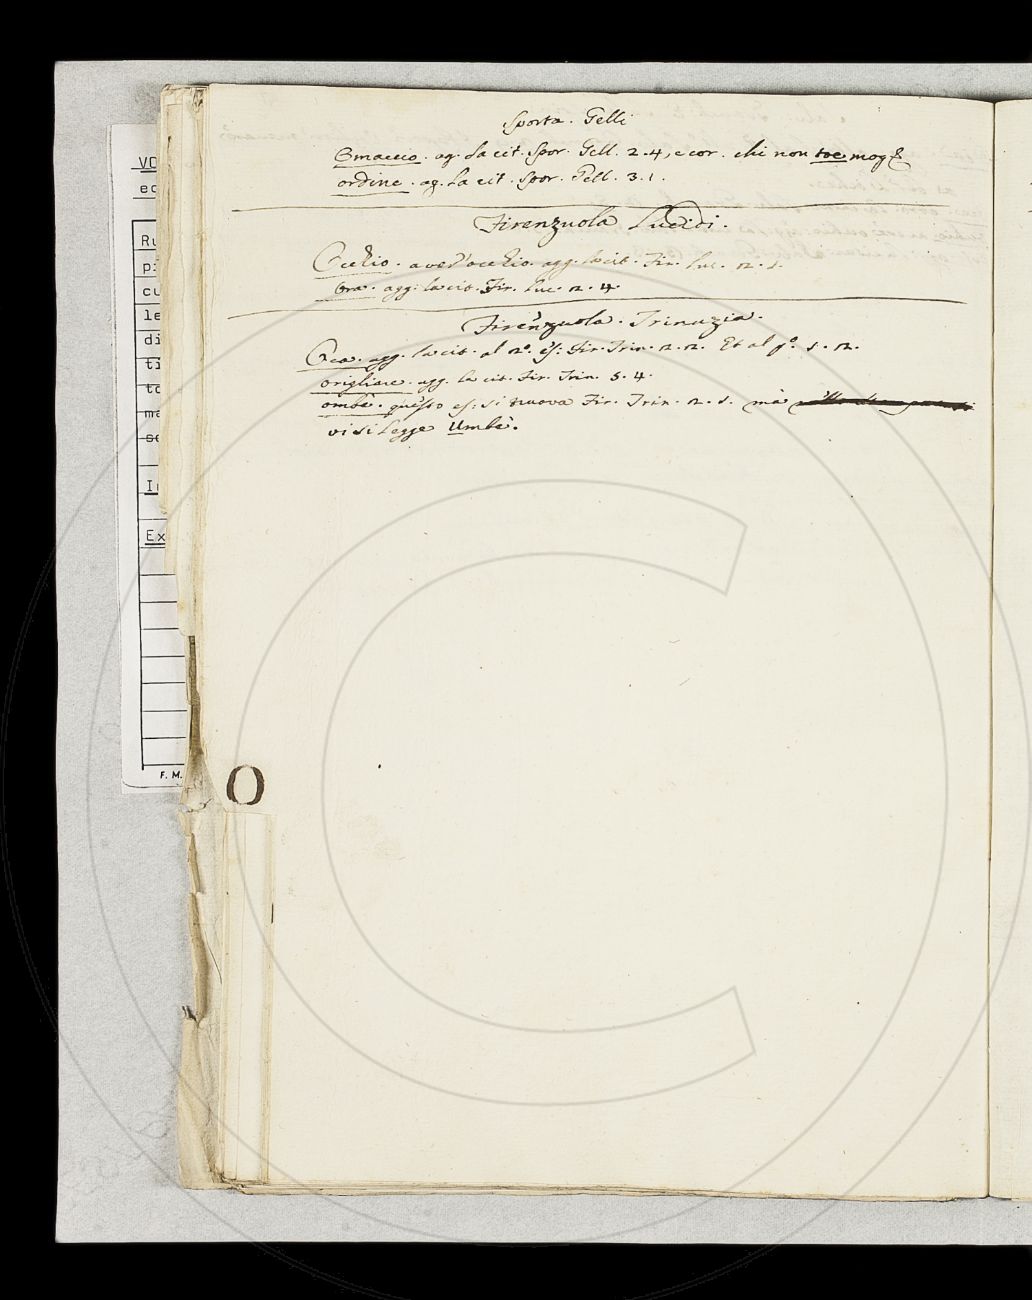 Sporta. Gelli
Omaccio. ag. la cit. Spor. Gell. 2.4, e cor. chi non toe mog
ordine. ag. la cit. Spor. Gell. 3.1.
Firenzuola Lucidi.
Occhio. aver l'occhio. agg. la cit. Fir. Luc. 2.1.
Ora. agg: la cit. Fir. Luc. 2.4.
Firenzuola. Trinuzia.
Oca. agg. la cit. al 2º. es: Fir. Trin. 2.2. Et al pº. 5.2.
origliare. agg. la cit. Fir. Trin. 5.4.
ombè. questo es: si truova Fir. Trin. 2.5. mà
vi si legge Umbè.
O
VO
Ru
cu
le
di
ti
ta
ma
Ex
F. M.